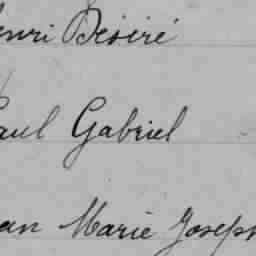 enri Désiré
Paul Gabriel
ean Marie Joseph